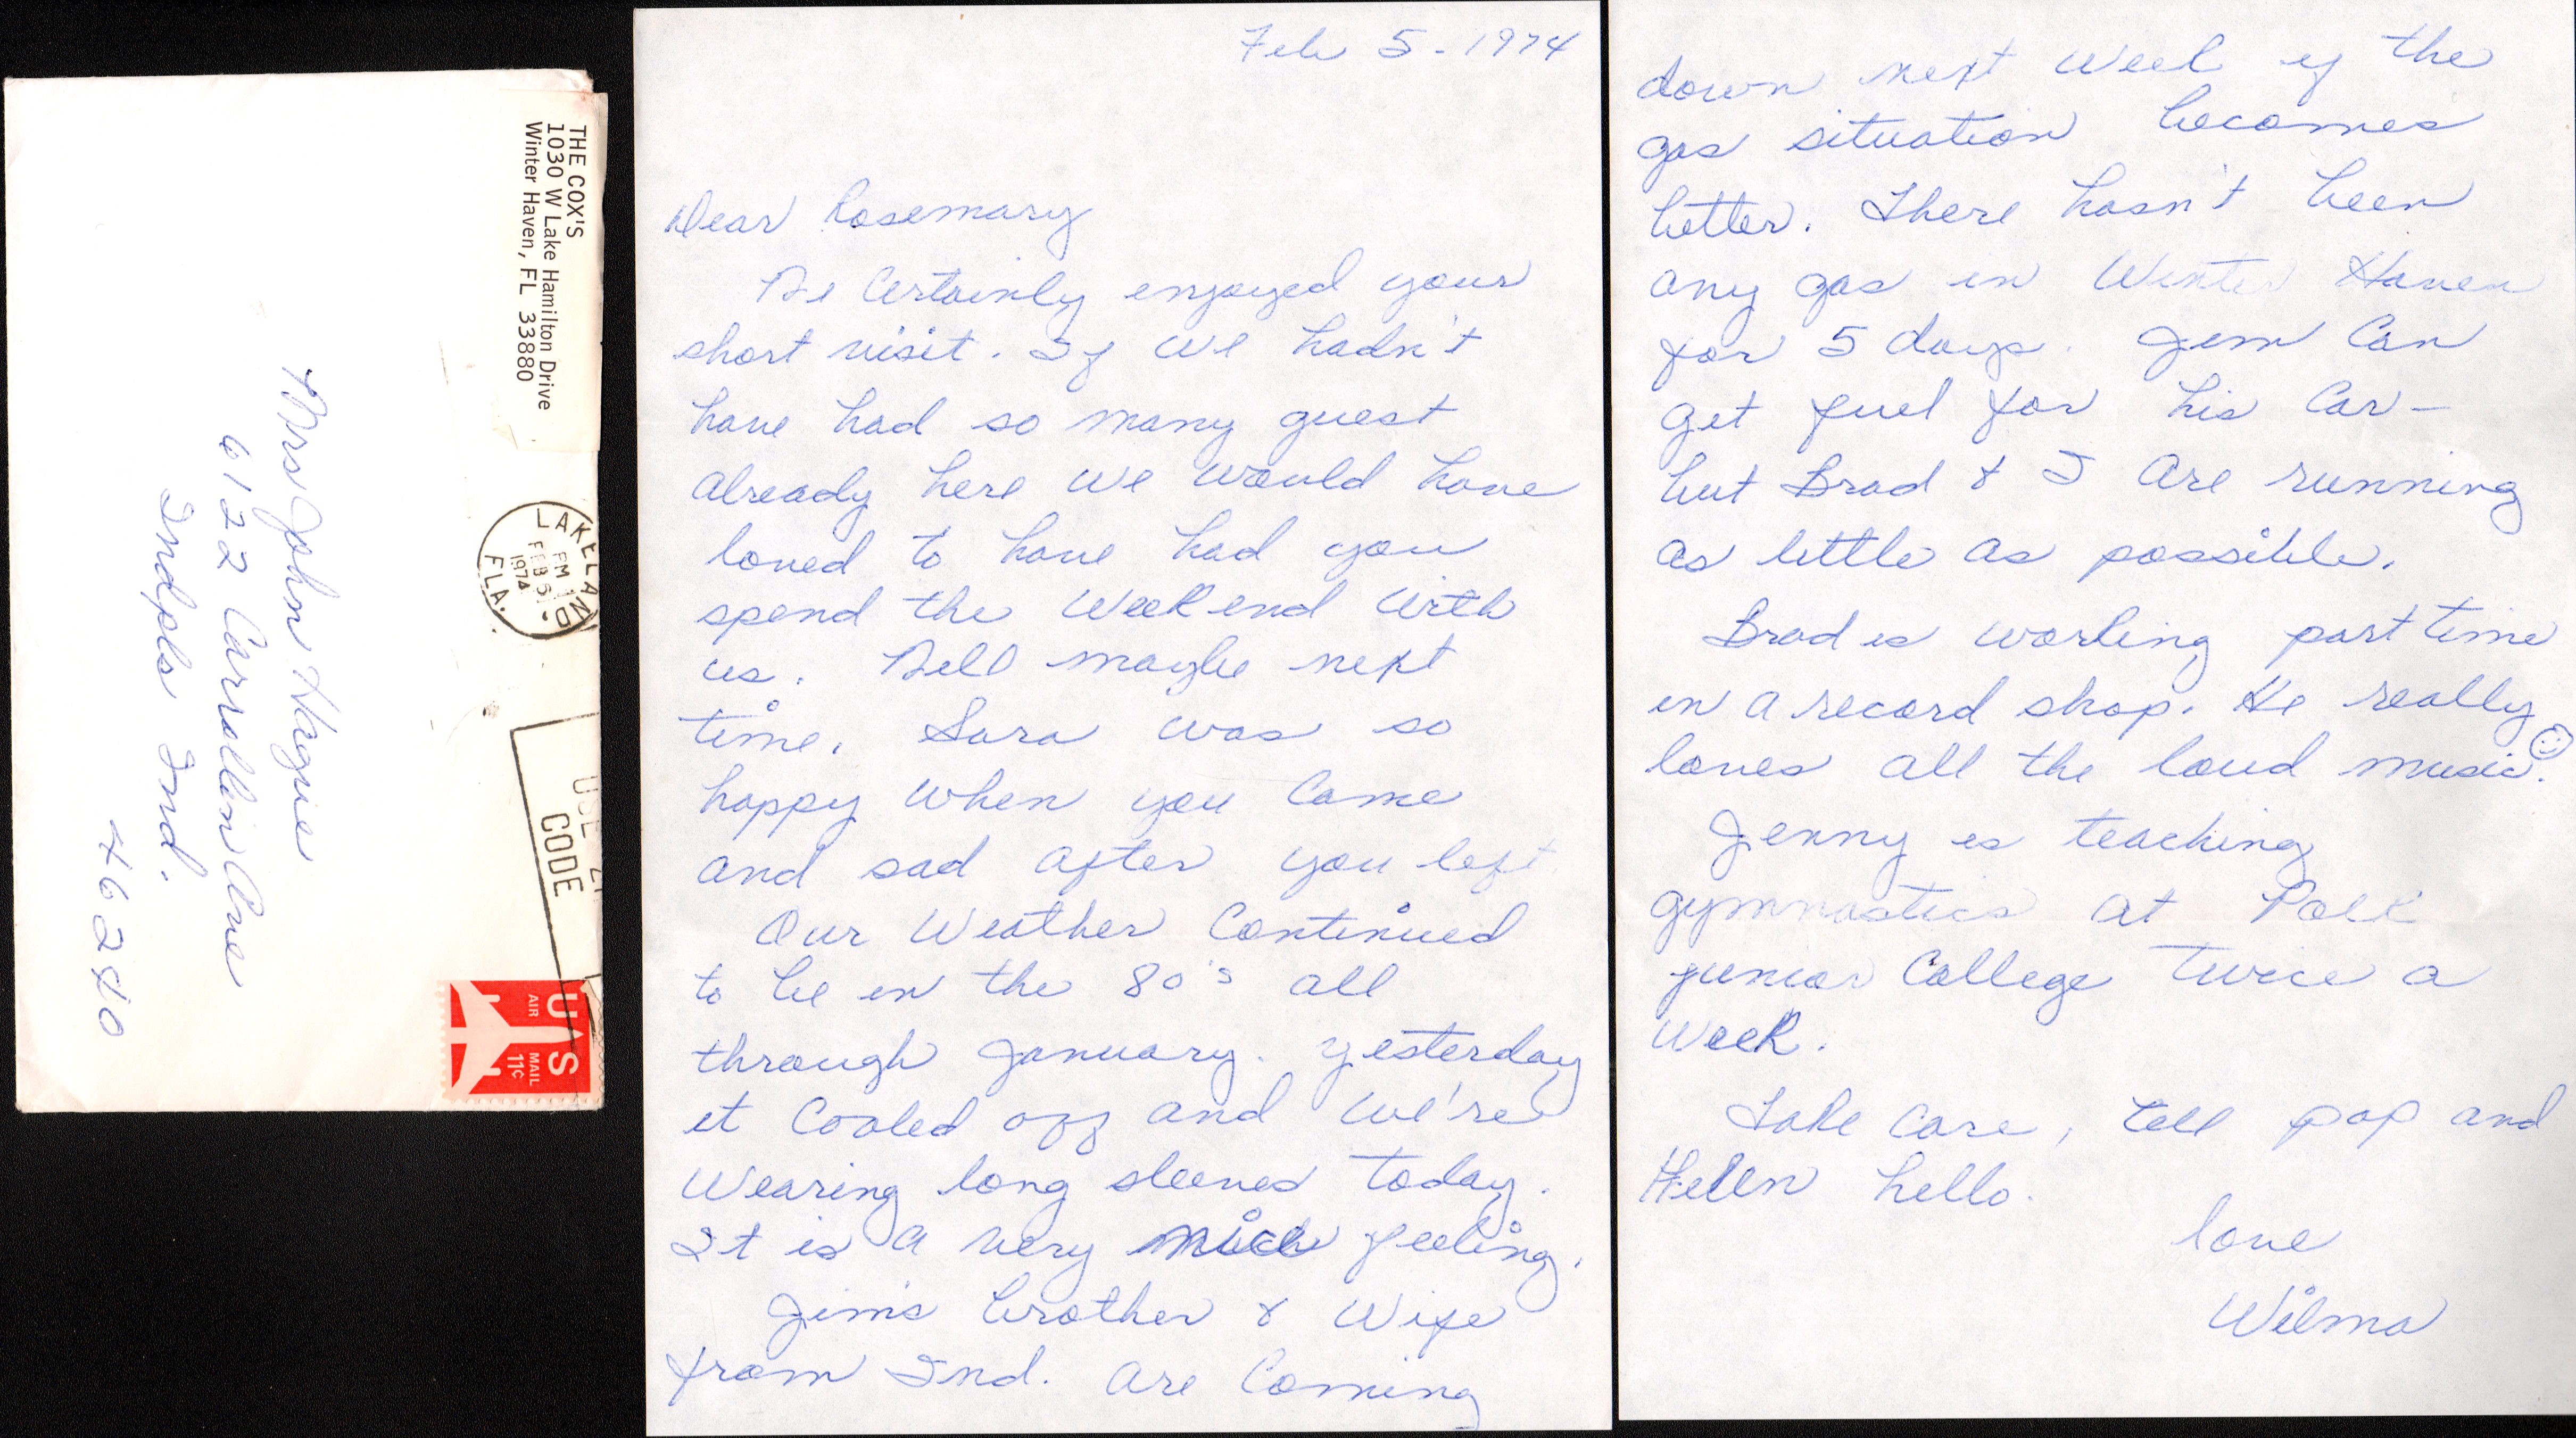 THE COX'S
1030 W Lake Hamilton Drive
Winter Haven, FL 33880
LAKELAND
PM
FEB 5
1974
FLA.
USE ZI
CODE
U S
AIR MAIL
11¢
Mrs John Hague
6122 Carrollton Ave
Indpls Ind.
46240
Feb 5 - 1974
Dear Rosemary
We Certainly enjoyed your
short visit. If we hadn't
have had so many guest
Already here we would have
loved to have had you
spend the Week end with
us. Well maybe next
time. Sara was so
happy when you Came
and sad after you left
Our Weather Continued
to be in the 80's all
through January. yesterday
it Cooled off and we're
Wearing long sleeves today.
It is a very nice feeling.
Jim's brother & Wife
from Ind. are Coming
down next Week if the
gas situation becomes
better. There hasn't been
any gas in Winter Haven
for 5 days. Jim Can
get fuel for his Car -
but Brad & I Are running
as little as possible.
Brad is working part time
in a record shop. He really
loves all the loud music. ☺
Jenny is teaching
gymnastics at Polk
junior College twice a
week.
Take Care, tell pop and
Helen hello.
love
Wilma